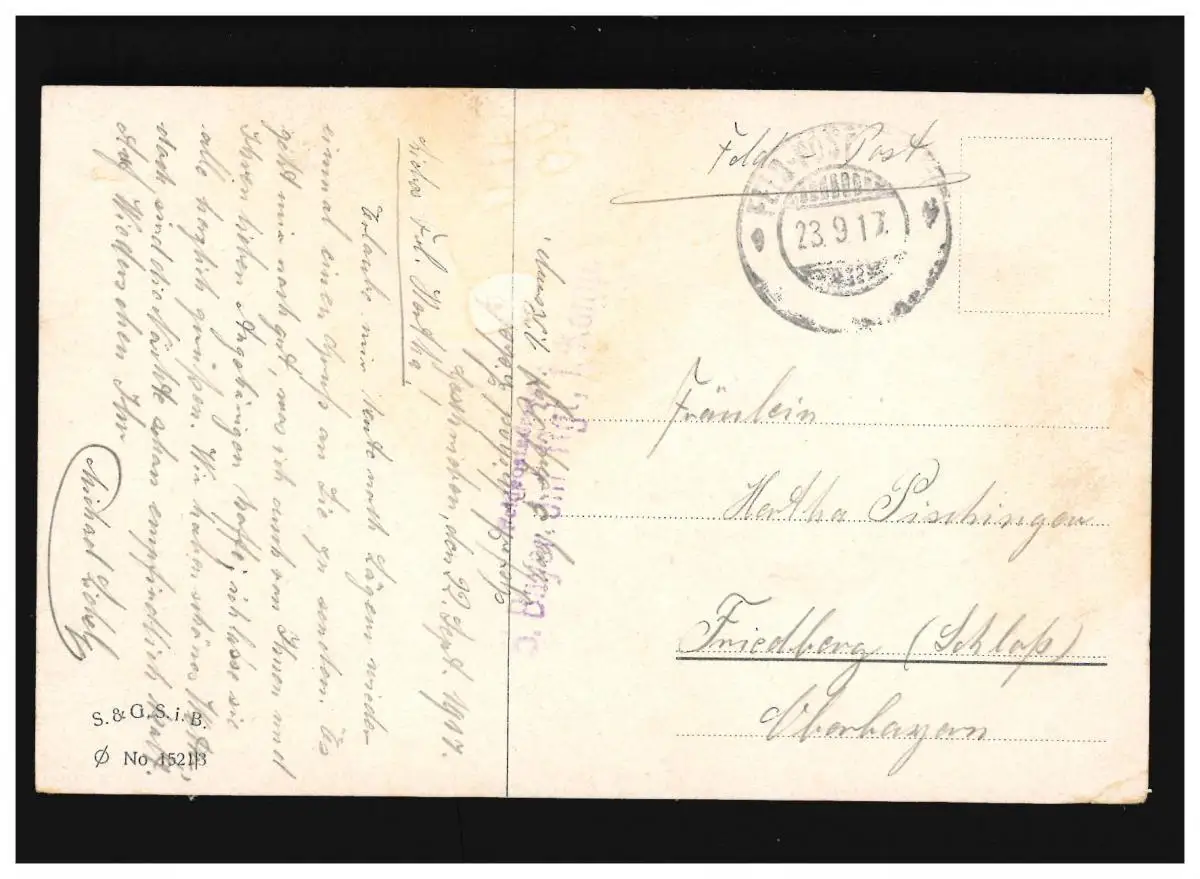 Feld-Post
FELD-POST
23.9.17.
Fräulein
Hertha Pischinger
Friedberg (Schloß)
Oberbayern
den 22. Sept. 1917.
Liebe Frl. Hertha!
Erlaube mir heute nach längerm wieder
einmal einen Gruß an Sie zu senden. Es
geht mir noch gut, was ich auch von Ihnen und
Ihren lieben Angehörigen hoffe, ich lasse sie
alle herzlich grüßen. Wir haben schönes
doch sind die Nächte schon empfindlich kalt.
Auf Wiedersehen Ihr
Michael
S. & G. S. i. B.
Ø No 1521/3